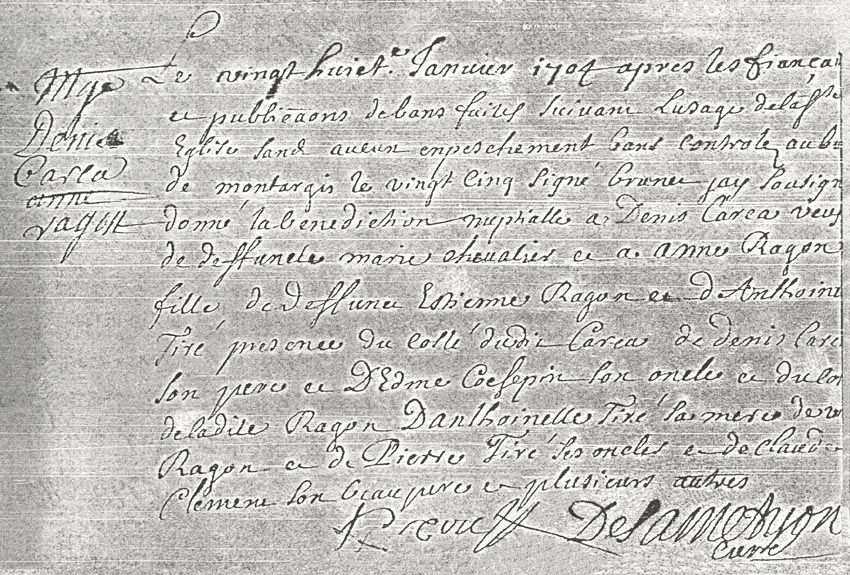 Mge
Denis
Carea
anne
ragon
Le vingt huiet.e Janvier 1704 apres les fiançai
et publicaons de bans faites suivant Lusage de la Ste
Eglise sand aucun enpeschement bans controlez au bu
de montargis le vingt cinq signé brunet jay sousign
donné la benediction nuptialle a Denis Carea veuf
de deffuncte marie chevalier et a anne Ragon
fille de Deffunct Estienne Ragon et d'Anthoine
Tiré presence du costé dudit Carea de Denis Care
son pere et D'Edme Coesepin son oncle et du cos
de ladite Ragon D'anthoinelle Tiré sa mere de
Ragon et de Pierre Tiré ses oncles et de Claude
Clement son beaupere et plusieurs autres
Delamotzon
Curé